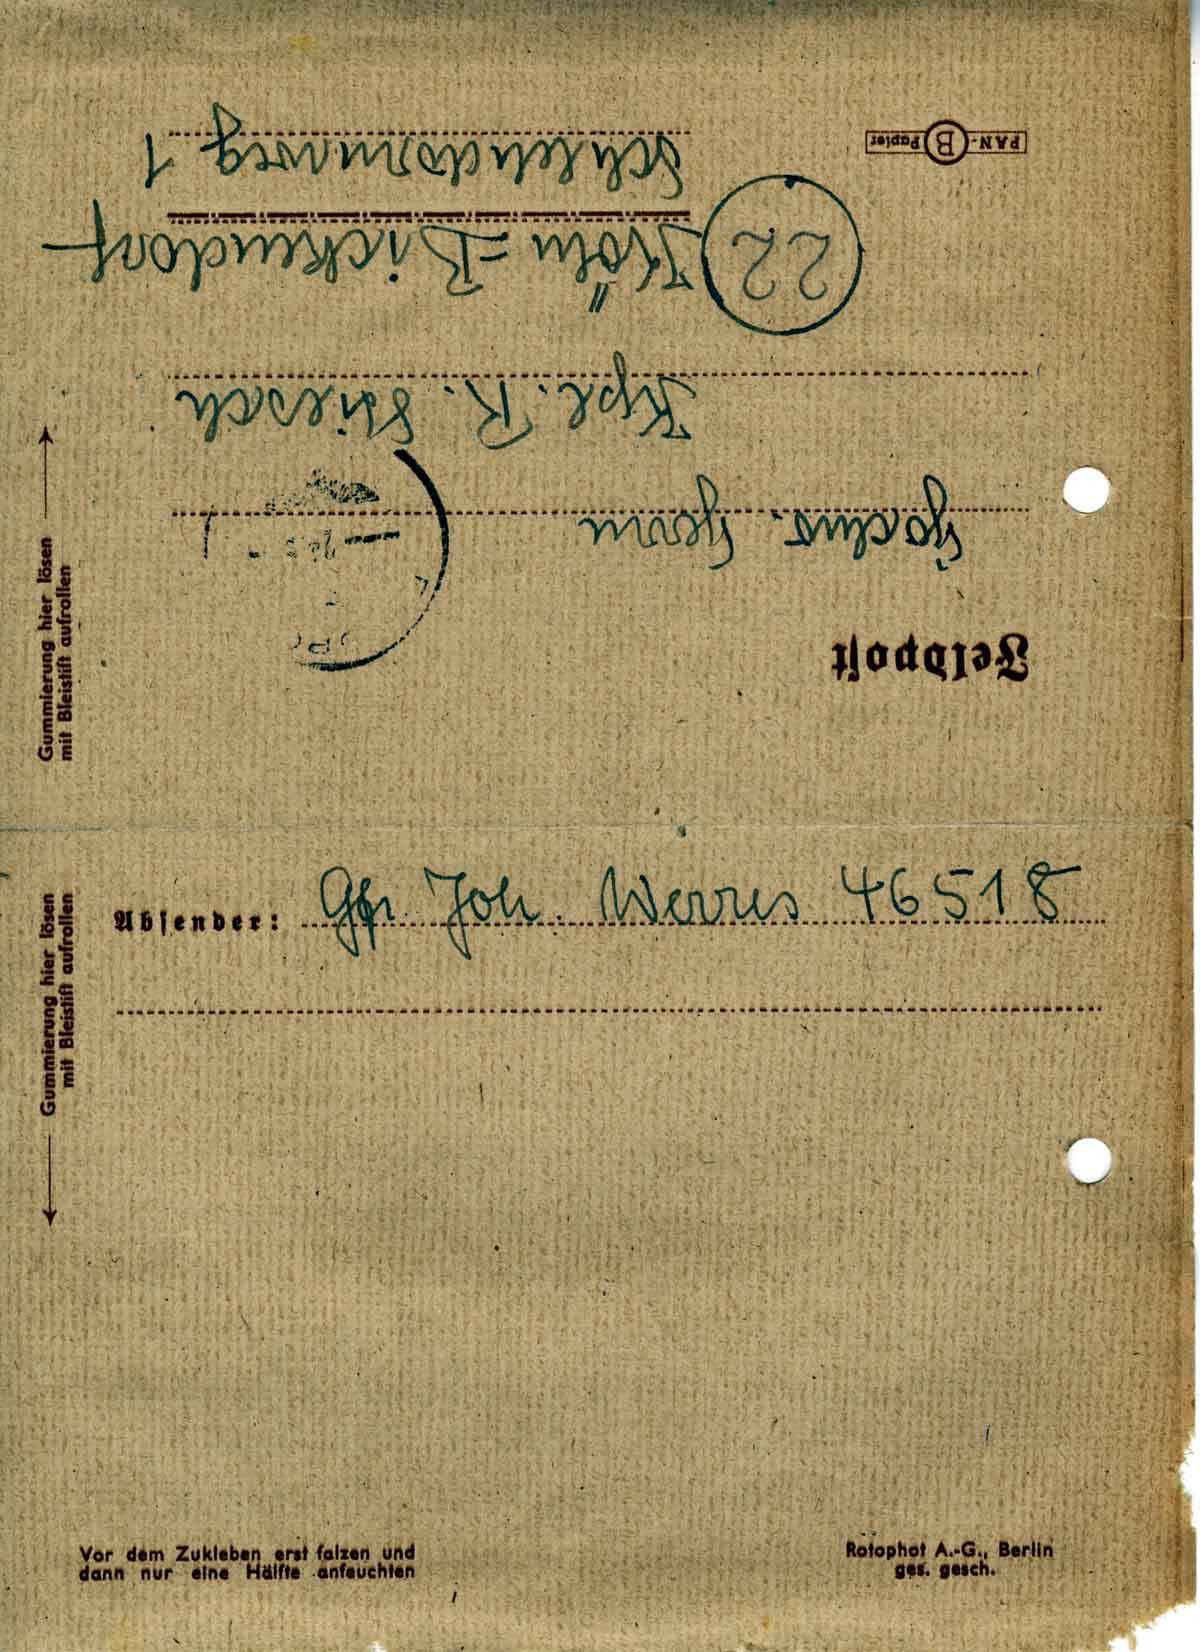 Feldpost
Hochw. Herrn
Kpl. R. Stiesch
22 Köln-Bickendorf
Schlehdornweg 1
PAN-B Papier
Gummierung hier lösen
mit Bleistift aufrollen
Absender: Gfr. Joh. Werres 46518
Gummierung hier lösen
mit Bleistift aufrollen
Vor dem Zukleben erst falzen und
dann nur eine Hälfte anfeuchten
Rotophot A.-G., Berlin
ges. gesch.